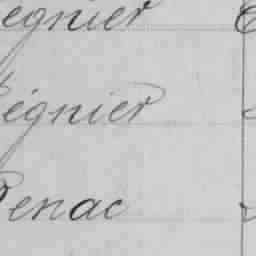 egnier
égnier
enac